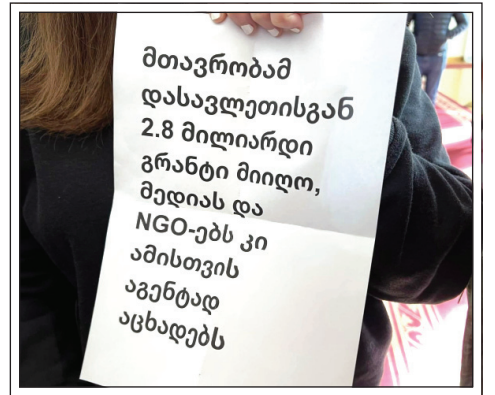 მთავრობამ
დასავლეთისგან
2.8 მილიარდი
გრანტი მიიღო,
მედიას და
NGO-ებს კი
ამისთვის
აგენტად
აცხადებს